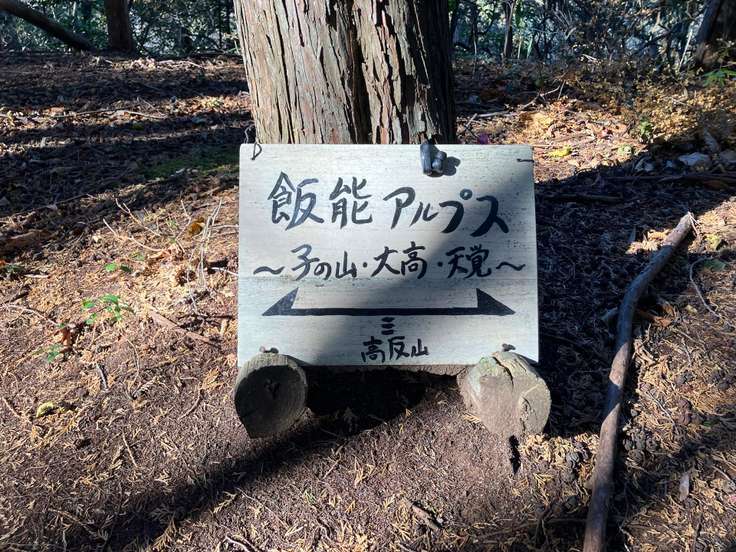 飯能アルプス
～子の山・大高・天覚～
三
高反山